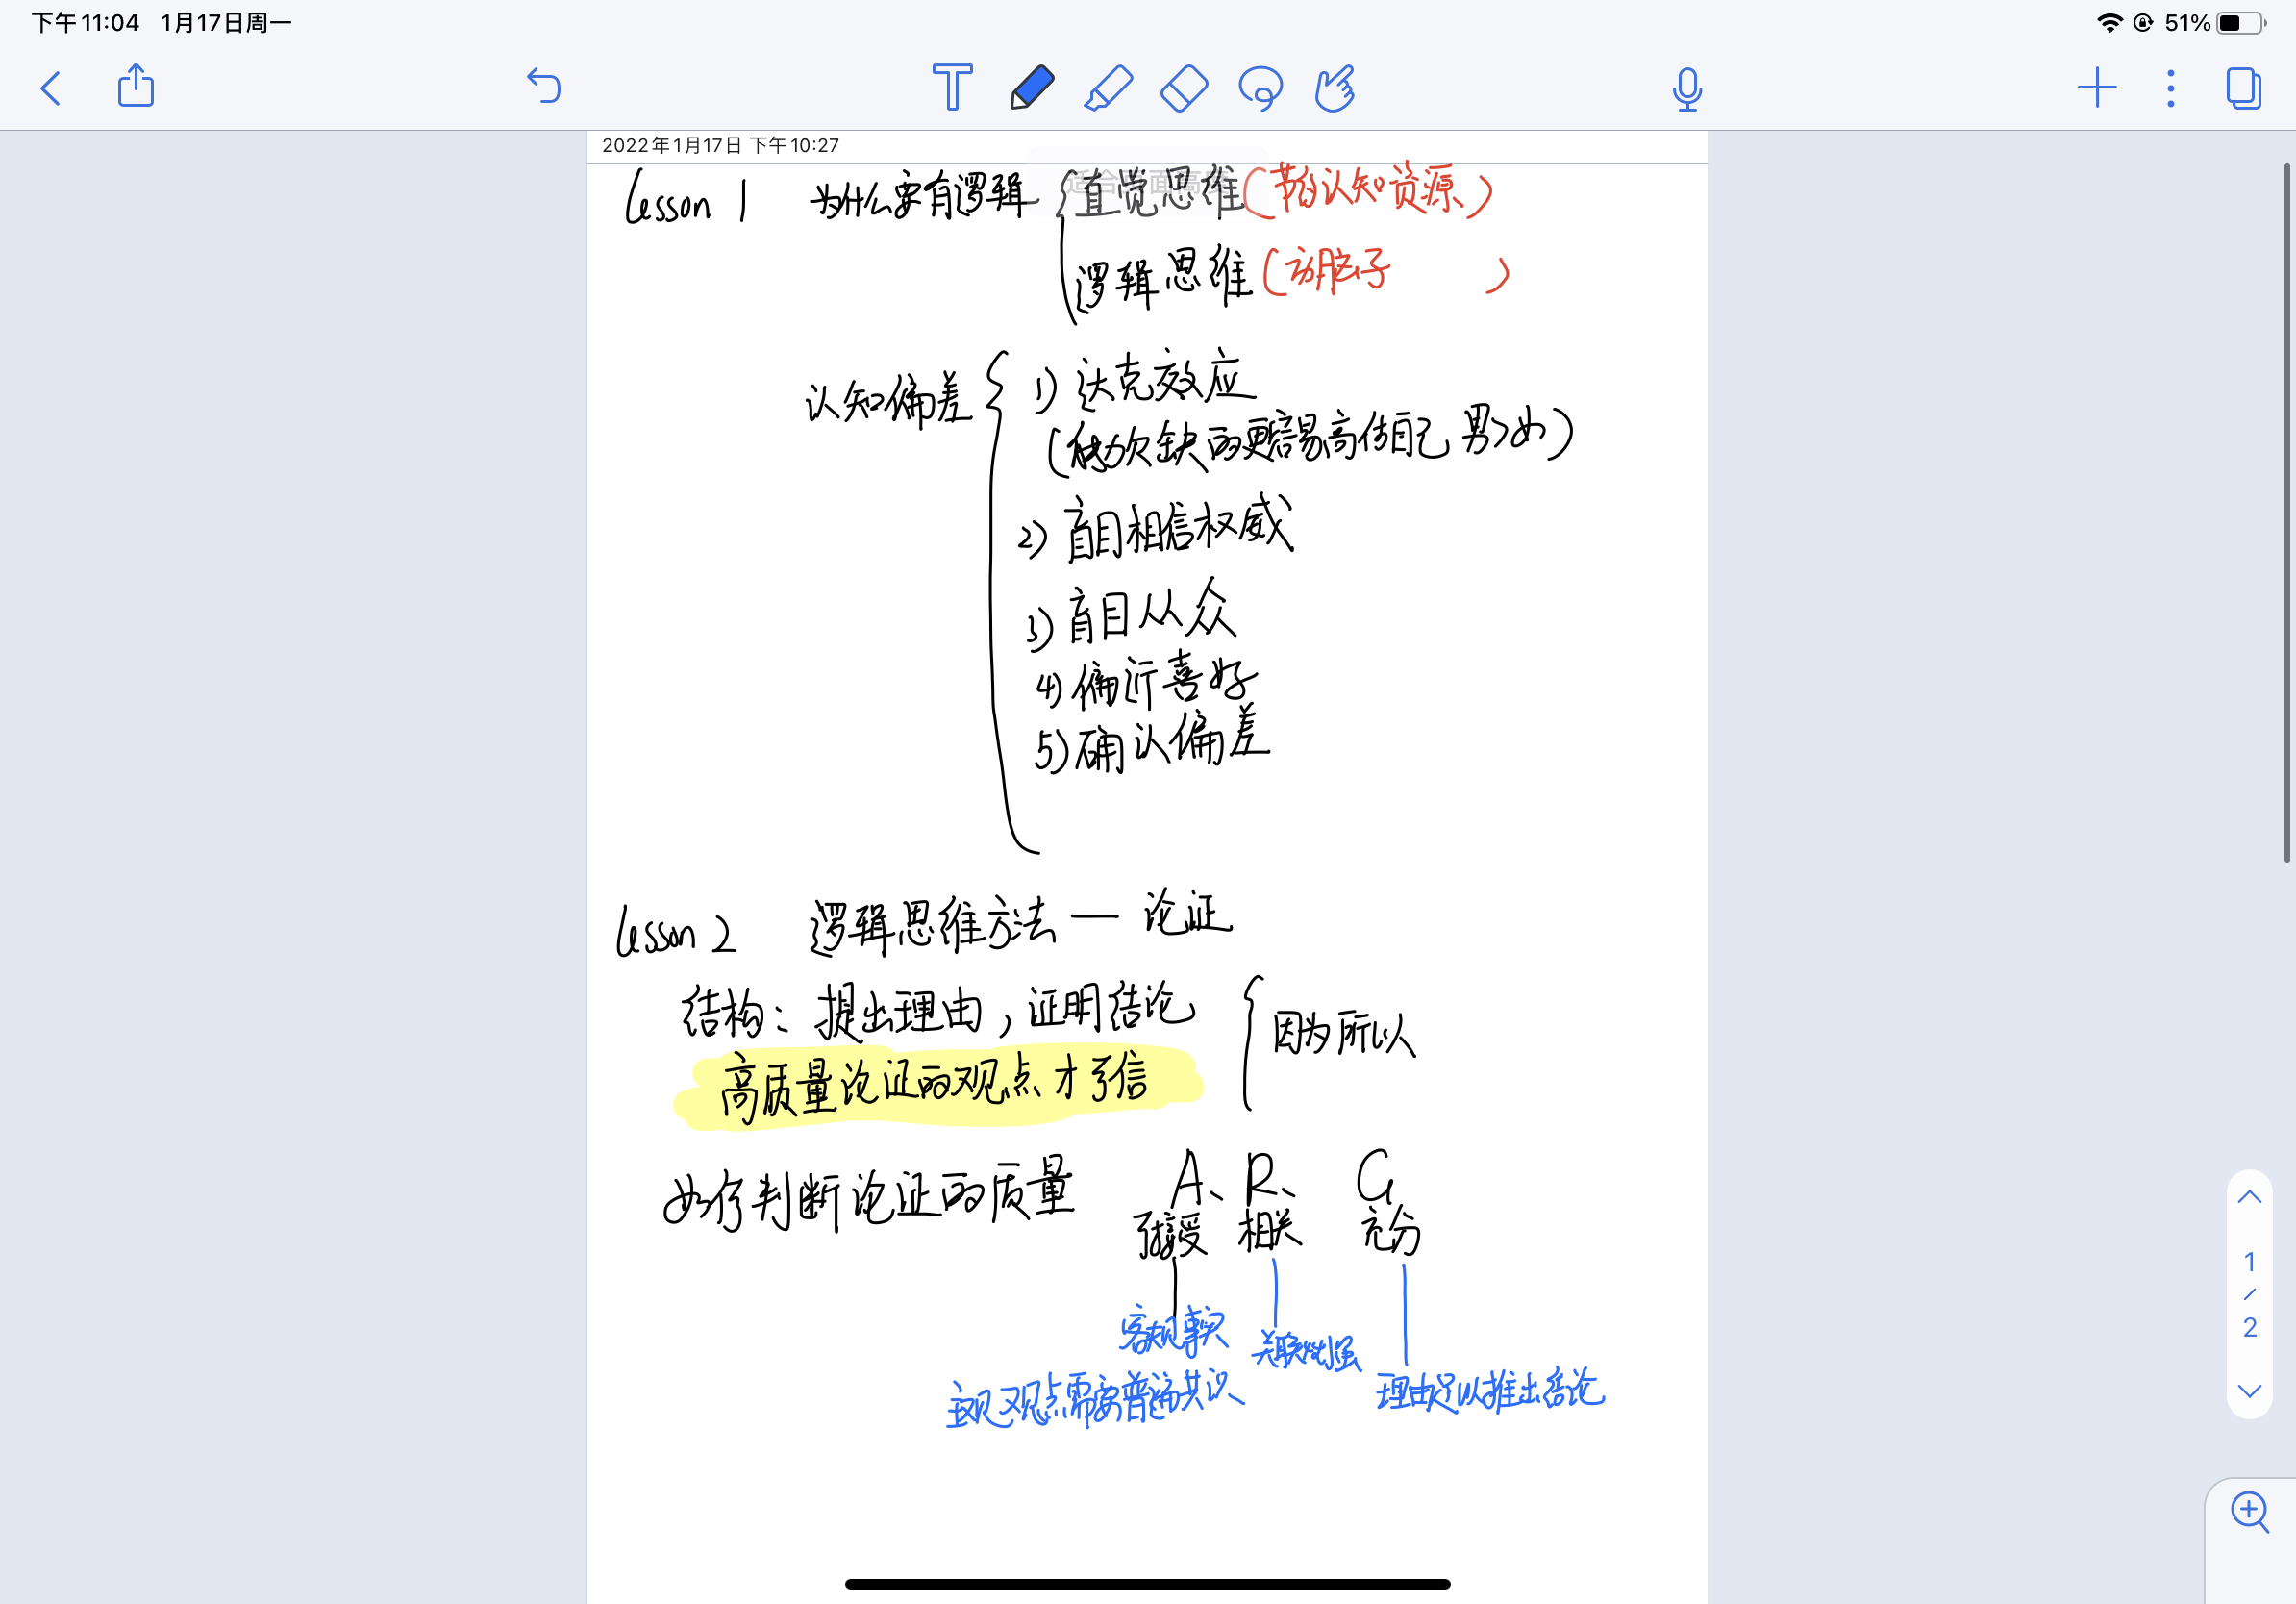 下午11:04 1月17日周一
51%
2022年1月17日 下午10:27
lesson 1 为什么要有逻辑 直觉思维(节约认知资源)
逻辑思维(动脑子 )
认知偏差 1) 达克效应
(能力欠缺的更容易高估自己 男>女)
2) 盲目相信权威
3) 盲目从众
4) 偏近喜好
5) 确认偏差
lesson 2 逻辑思维方法 — 论证
结构: 提出理由, 证明结论 因为所以
高质量论证的观点才可信
如何判断论证的质量 A、R、G
可接受 相关 充分
客观事实 关联性强
主观观点需要普遍共识 理由足以推出结论
1
/
2